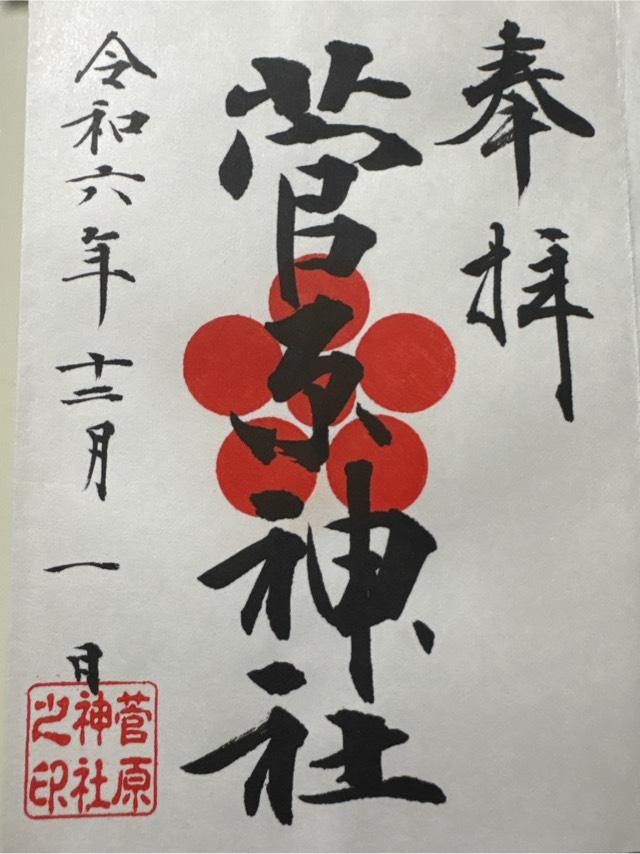 奉拝
菅原神社
令和六年十二月一日
菅原
神社
之印